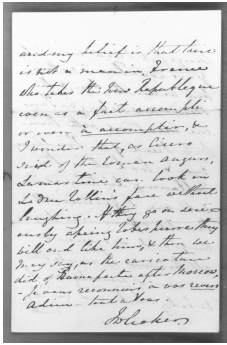 and my belief is that there
is not a man in France
who takes the New Republique
even as a fait accompli
or even a accomplir, &
I wonder that, as Cicero
said of the Roman augurs,
Lamartine can look in
Ledru Rollin's face without
laughing. If they go on seri-
ously apeing Robespierre they
will end like him, & then we
may say, as the caricature
did of Buonaparte after Moscow,
je vous reconnois, je vous revois
Adieu
JWCroker